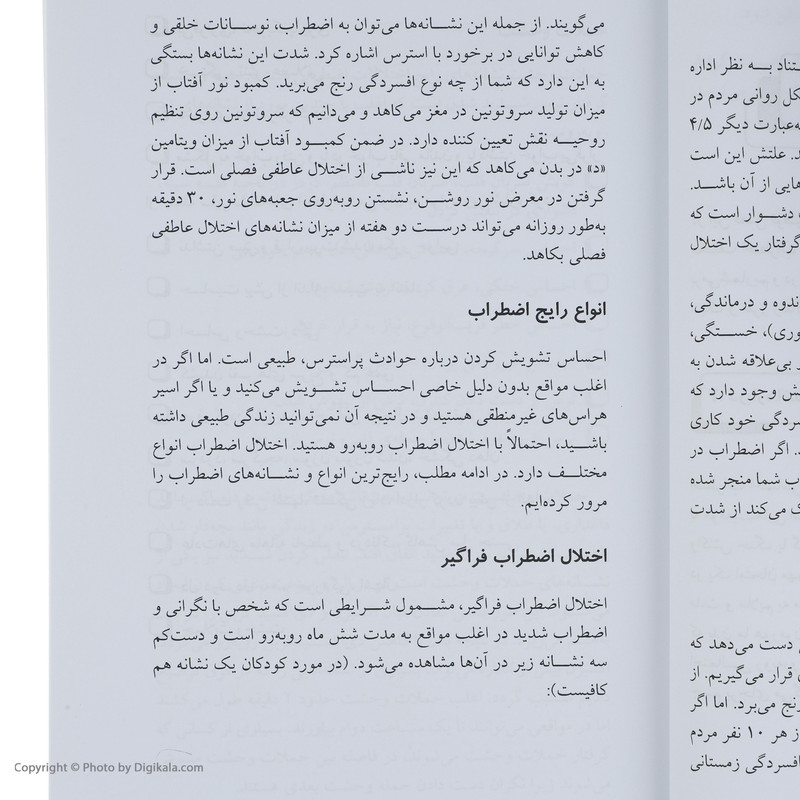 ستناد بــه نظر اداره
کل روانی مردم در
به‌عبارت دیگر ۴/۵
د. علتش این است
هایی از آن باشــد.
، دشــوار است که
گرفتار یک اختلال
ندوه و درماندگی،
وری)، خســتگی،
ر بی‌علاقه شدن به
ش وجود دارد که
سردگی خود کاری
د. اگر اضطراب در
ب شما منجر شده
ک می‌کند از شدت
ی دست می‌دهد که
ی قرار می‌گیریم. از
رنج می‌برد. اما اگر
ز هر ۱۰ نفر مردم
فسردگی زمستانی
می‌گویند. از جمله این نشــانه‌ها می‌توان به اضطراب، نوســانات خلقی و
کاهش توانایی در برخورد با استرس اشاره کرد. شدت این نشانه‌ها بستگی
به این دارد که شما از چه نوع افسردگی رنج می‌برید. کمبود نور آفتاب از
میزان تولید سروتونین در مغز می‌کاهد و می‌دانیم که سروتونین روی تنظیم
روحیــه نقش تعیین کننده دارد. در ضمن کمبــود آفتاب از میزان ویتامین
«د» در بدن می‌کاهد که این نیز ناشــی از اختلال عاطفی فصلی است. قرار
گرفتن در معرض نور روشــن، نشستن روبه‌روی جعبه‌های نور، ۳۰ دقیقه
به‌طور روزانه می‌تواند درســت دو هفته از میزان نشانه‌های اختلال عاطفی
فصلی بکاهد.
انواع رایج اضطراب
احساس تشویش کردن درباره حوادث پراسترس، طبیعی است. اما اگر در
اغلب مواقع بدون دلیل خاصی احســاس تشــویش می‌کنید و یا اگر اسیر
هراس‌های غیرمنطقی هستید و در نتیجه آن نمی‌توانید زندگی طبیعی داشته
باشــید، احتمالاً با اختلال اضطراب روبه‌رو هستید. اختلال اضطراب انواع
مختلــف دارد. در ادامه مطلب، رایج‌ترین انواع و نشــانه‌های اضطراب را
مرور کرده‌ایم.
اختلال اضطراب فراگیر
اختلال اضطراب فراگیر، مشــمول شــرایطی است که شخص با نگرانی و
اضطراب شدید در اغلب مواقع به مدت شش ماه روبه‌رو است و دست‌کم
سه نشــانه زیر در آن‌ها مشاهده می‌شود. (در مورد کودکان یک نشانه هم
کافیست):
Copyright © Photo by Digikala.com